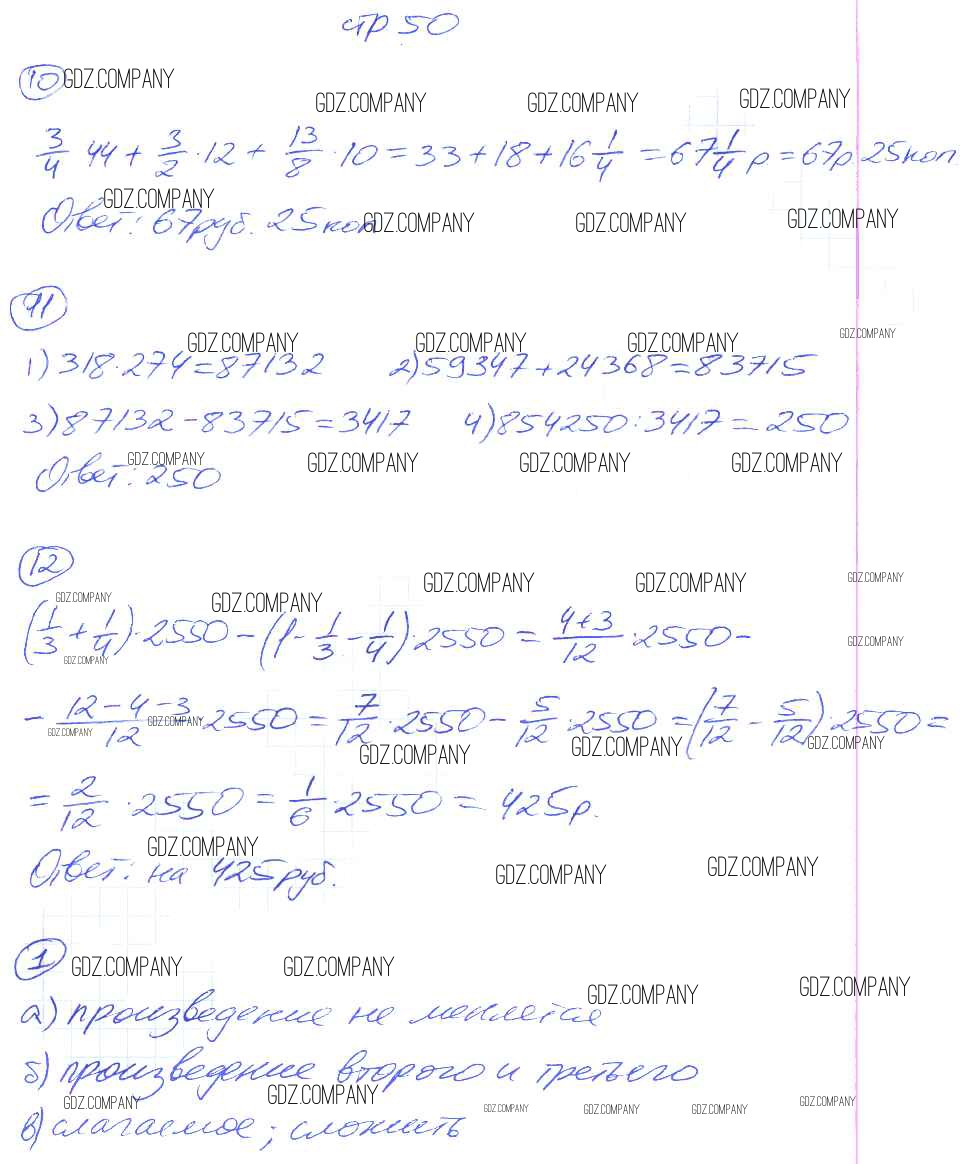 стр 50
10 GDZ.COMPANY
GDZ.COMPANY GDZ.COMPANY GDZ.COMPANY
3/4 44 + 3/2 · 12 + 13/8 · 10 = 33 + 18 + 16 1/4 = 67 1/4 р = 67р 25коп
GDZ.COMPANY
Ответ: 67руб. 25коп GDZ.COMPANY GDZ.COMPANY GDZ.COMPANY
11
GDZ.COMPANY GDZ.COMPANY GDZ.COMPANY GDZ.COMPANY
1) 318·274=87132 2) 59347+24368=83715
3) 87132-83715=3417 4) 854250:3417=250
GDZ.COMPANY GDZ.COMPANY GDZ.COMPANY GDZ.COMPANY
Ответ: 250
12
GDZ.COMPANY GDZ.COMPANY GDZ.COMPANY
GDZ.COMPANY GDZ.COMPANY
(1/3 + 1/4)·2550 - (1 - 1/3 - 1/4)·2550 = 4+3/12 ·2550 - GDZ.COMPANY
GDZ.COMPANY
- 12-4-3/12 GDZ.COMPANY 2550 = 7/12 ·2550 - 5/12 ·2550 = (7/12 - 5/12)·2550 =
GDZ.COMPANY GDZ.COMPANY GDZ.COMPANY GDZ.COMPANY
= 2/12 ·2550 = 1/6 ·2550 = 425р.
GDZ.COMPANY
Ответ: на 425руб. GDZ.COMPANY GDZ.COMPANY
1 GDZ.COMPANY GDZ.COMPANY
GDZ.COMPANY GDZ.COMPANY
а) произведение не меняется
б) произведение второго и третьего
GDZ.COMPANY GDZ.COMPANY GDZ.COMPANY GDZ.COMPANY GDZ.COMPANY GDZ.COMPANY
в) слагаемое; сложить